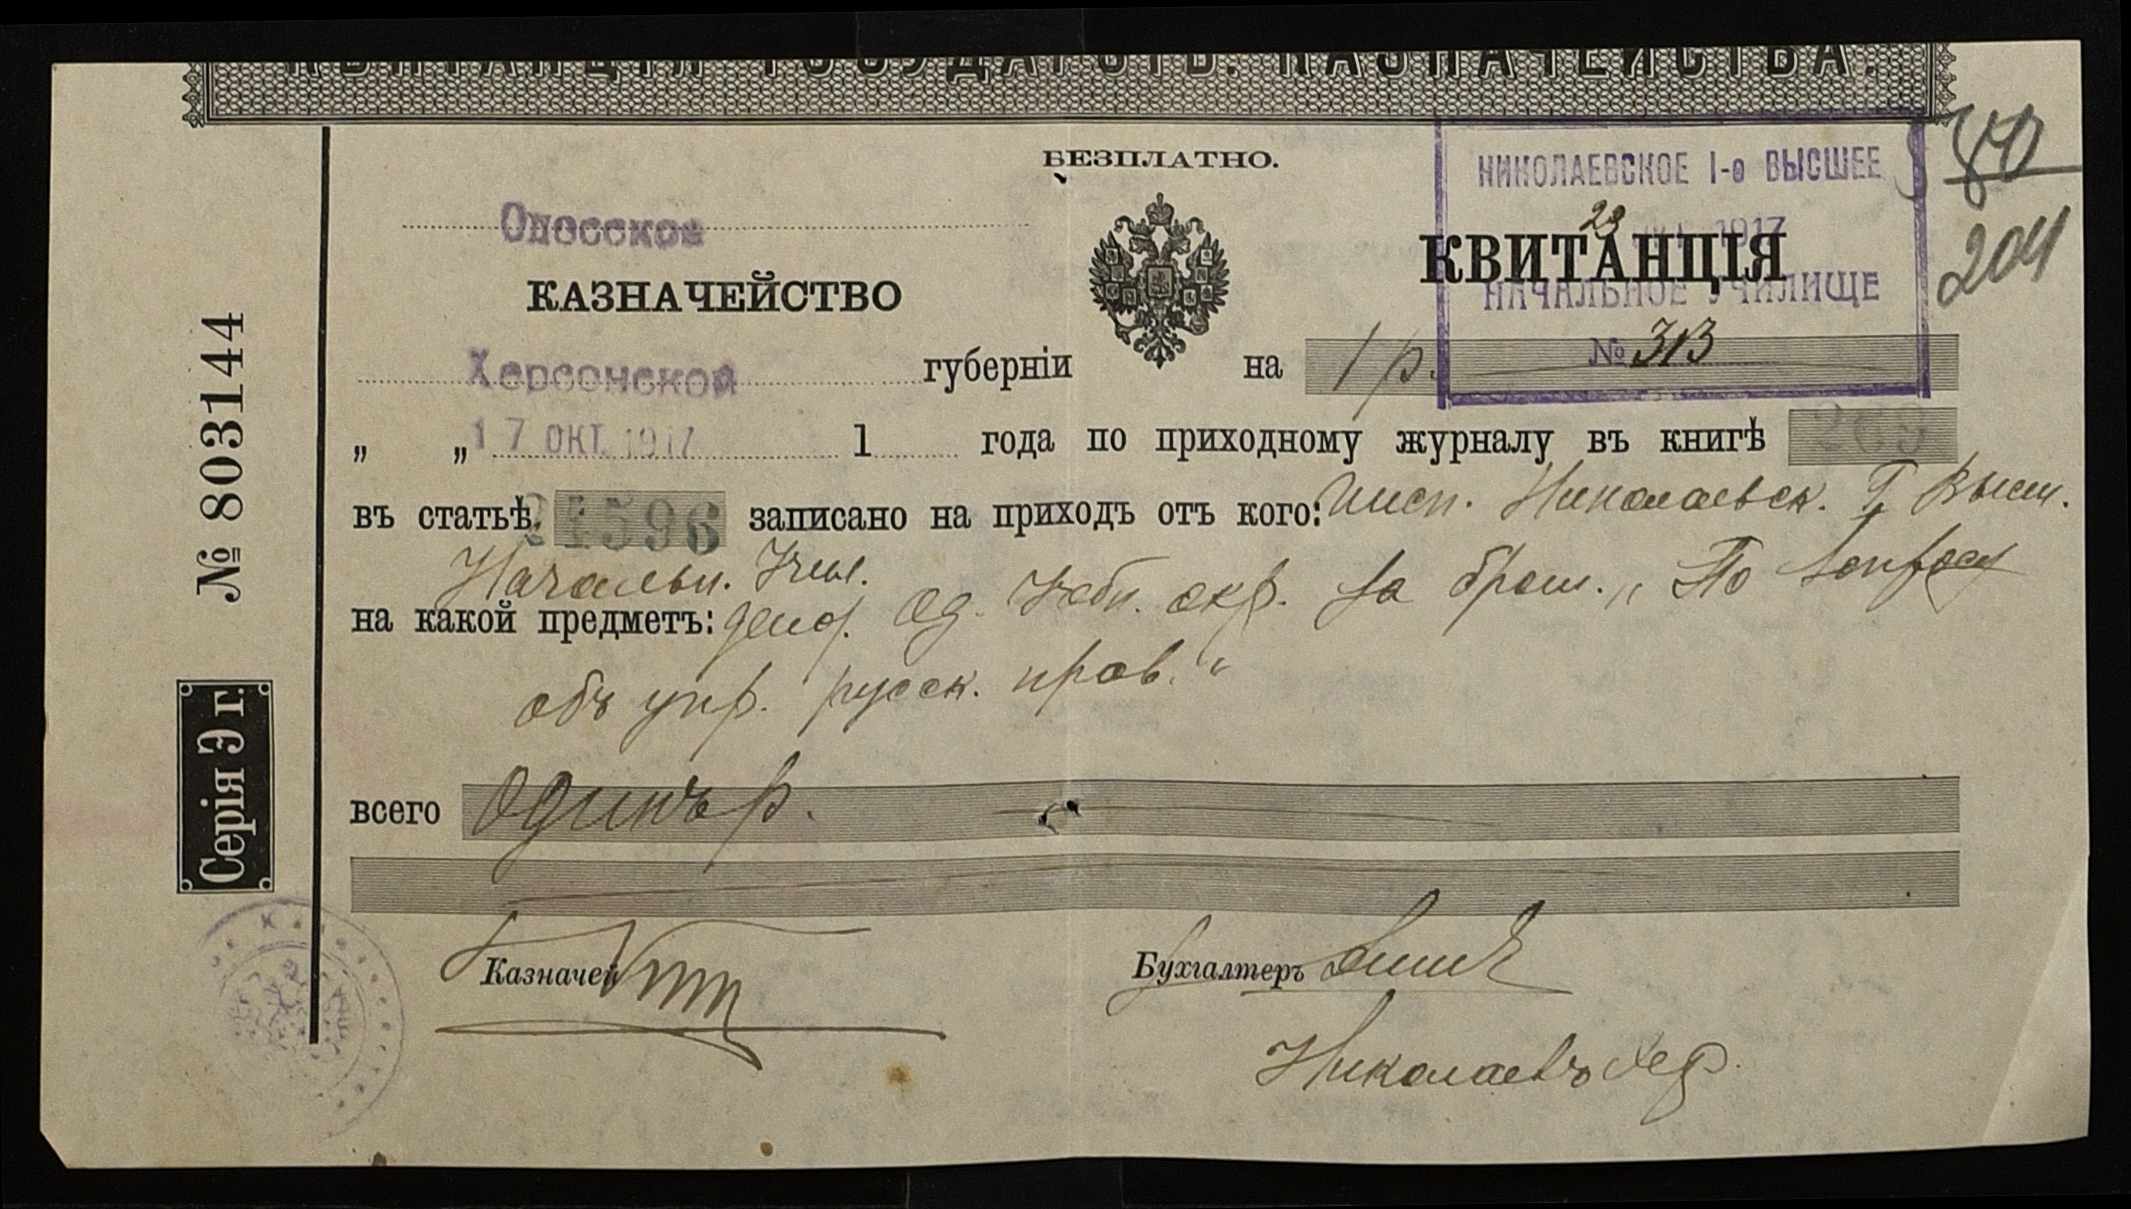 КВИТАНЦІЯ ГОСУДАРСТВ. КАЗНАЧЕЙСТВА.
БЕЗПЛАТНО.
НИКОЛАЕВСКОЕ I-е ВЫСШЕЕ
23 1917
НАЧАЛЬНОЕ УЧИЛИЩЕ
№ 313
80
204
Одесское
КАЗНАЧЕЙСТВО
КВИТАНЦІЯ
Херсонской губерніи на 1 р.
„ „ 17 ОКТ. 1917 1 года по приходному журналу въ книгѣ 269
въ статьѣ 24596 записано на приходъ отъ кого: Инсп. Николаевск. I Высш.
Начальн. Учил.
на какой предметъ: деп. Од. Учебн. окр. за брош. „По вопросу
объ упр. русск. прав."
всего Одинъ р.
Казначей
Бухгалтеръ
Николаевъ Хер.
№ 803144
Серія Э г.